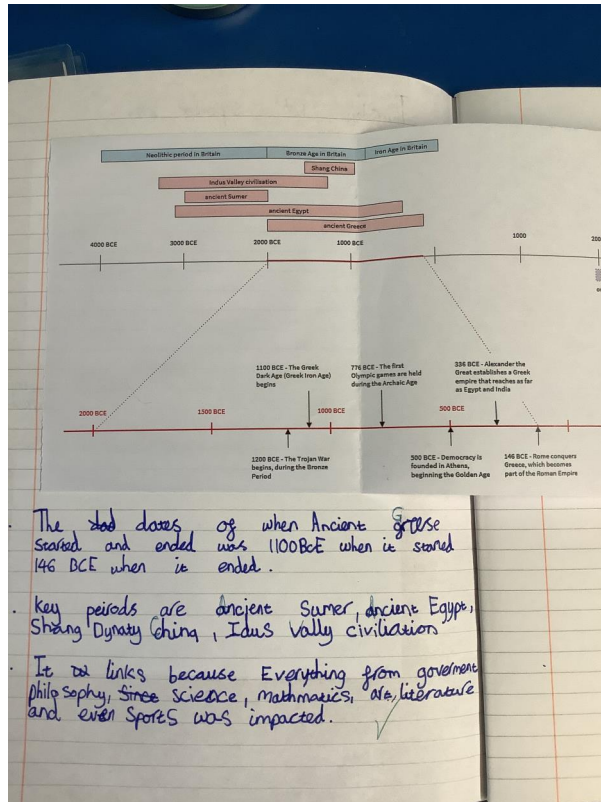 Neolithic period in Britain
Bronze Age in Britain
Iron Age in Britain
Shang China
Indus Valley civilisation
ancient Sumer
ancient Egypt
ancient Greece
4000 BCE
3000 BCE
2000 BCE
1000 BCE
1000
1100 BCE - The Greek
Dark Age (Greek Iron Age)
begins
776 BCE - The first
Olympic games are held
during the Archaic Age
336 BCE - Alexander the
Great establishes a Greek
empire that reaches as far
as Egypt and India
2000 BCE
1500 BCE
1000 BCE
500 BCE
1200 BCE - The Trojan War
begins, during the Bronze
Period
500 BCE - Democracy is
founded in Athens,
beginning the Golden Age
146 BCE - Rome conquers
Greece, which becomes
part of the Roman Empire
The dates of when Ancient Greese
started and ended was 1100BCE when it stared
146 BCE when it ended.
Key peirods are ancient Sumer, ancient Egypt,
Shang Dynaty China, Idus Vally civiliation
It links because Everything from goverment
philosophy, science, mathmatics, art, literature
and even Sports was impacted.